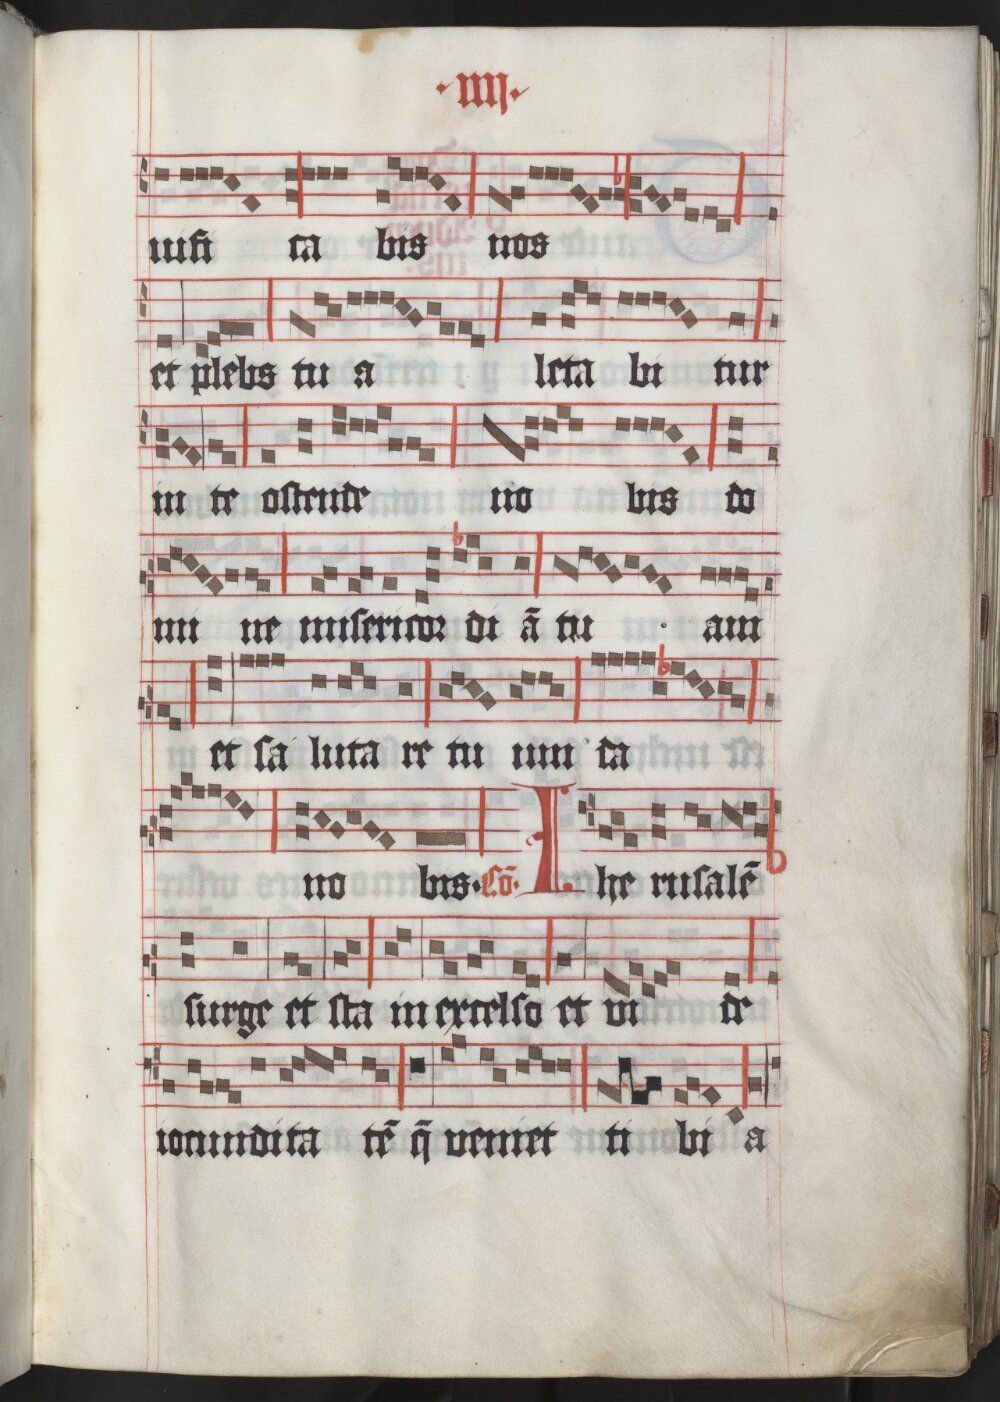 ·iiij·
uifi ca bis nos
et plebs tu a leta bi tur
in te ostende no bis do
mi ne misericor di ā tu am
et sa luta re tu um da
no bis· Cō· I he rusalē
surge et sta in excelso et vi de
iocundita tē q̄ veniet ti bi a